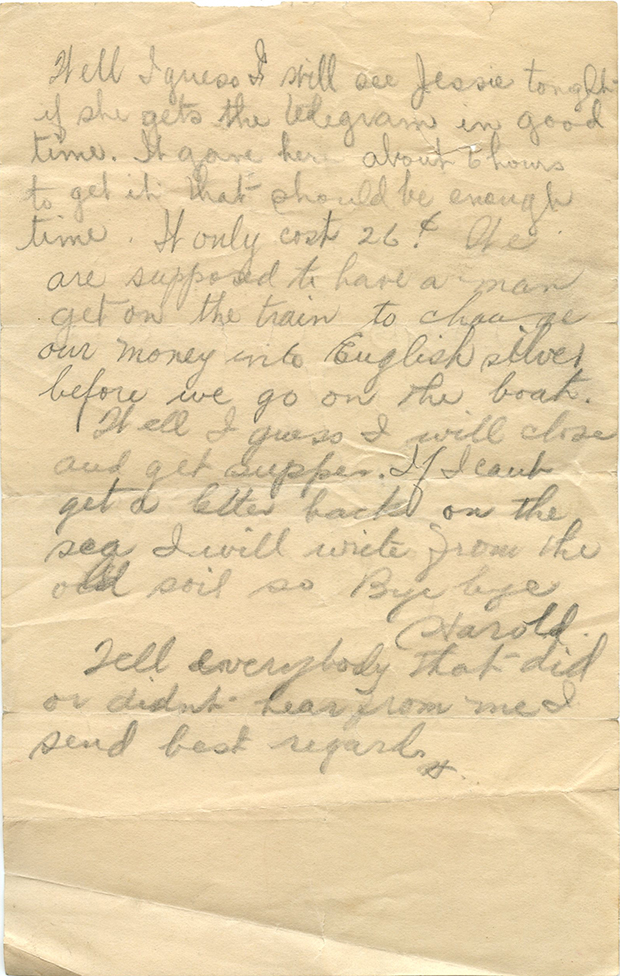 Well I guess I will see Jessie tonght
if she gets the telegram in good
time. It gave her about 6 hours
to get it. that should be enough
time. It only cost 26¢ We
are supposed to have a man
get on the train to change
our money into English silver
before we go on the boat.
Well I guess I will close
and get supper. If I cant
get a letter back on the
sea I will write from the
old soil so Bye bye
Harold.
Tell everybody that did
or didnt hear from me I
send best regards
H.